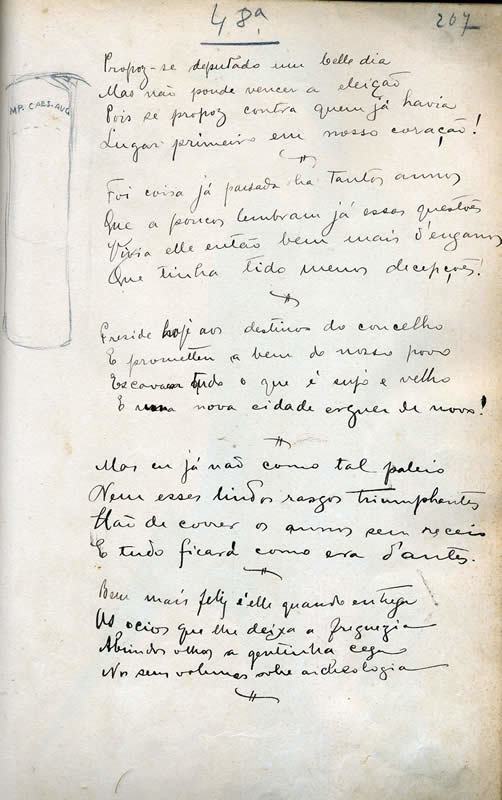 48ª
207
MP. CAES. AUG
Propoz-se deputado um bello dia
Mas não poude vencer a eleição
Pois se propoz contra quem já havia
Lugar primeiro em nosso coração!
Foi coisa já passada ha tantos annos
Que a poucos lembram já essas questões
Vivia elle então bem mais d'enganos
Que tinha tido menos decepções!
Preside hoje aos destinos do concelho
E prometteu a bem do nosso povo
Escavacar tudo o que é sujo e velho
E uma nova cidade erguer de novo!
Mas eu já não como tal paleio
Nem esses lindos rasgos triumphantes
Hão de correr os annos sem receio
E tudo ficará como era d'antes.
Bem mais feliz é elle quando entrega
Os ocios que lhe deixa a freguezia
Abrindo olhos a gentinha cega
Nos seus volumes sobre archeologia